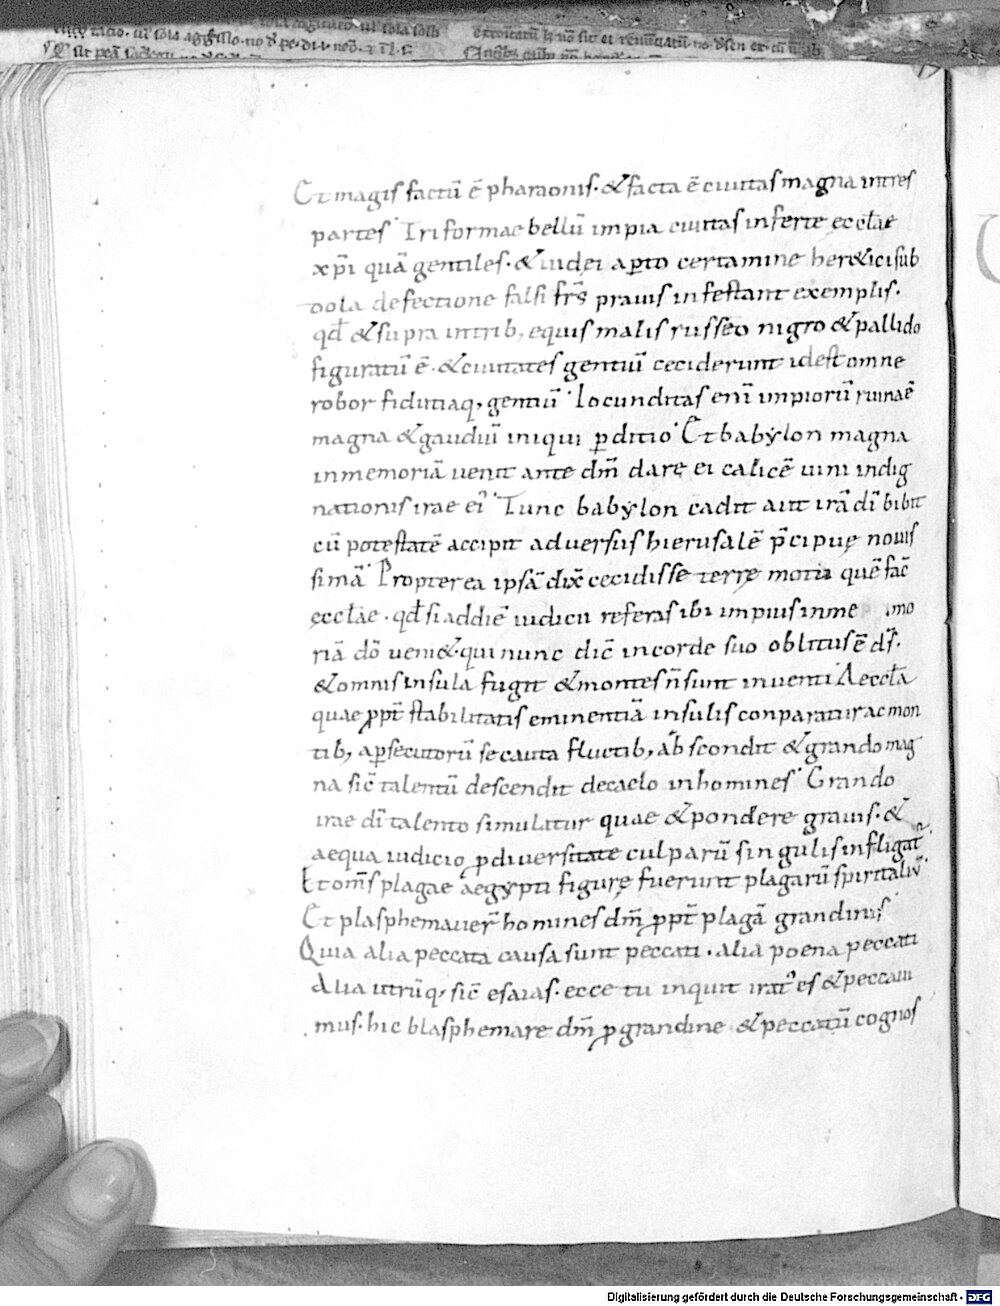 Et magis factū ē pharaonis. & facta ē ciuitas magna intres
partes Triformae bellū impia ciuitas inferte eccłae
xp̄i quā gentiles. & iudei aperto certamine her&ici sub
dola defectione falsi fr̄s prauis infestant exemplis.
qđ & supra intrib; equis malis russeo nigro & pallido
figuratū ē. & ciuitates gentiū ceciderunt idest omne
robor fidutiaq; gentiū Iocunditas enī impiorū ruina ē
magna & gaudiū iniqui ꝑditio Et babẏlon magna
inmemoriā uenit ante dm̄ dare ei calicē uini indig
nationis irae ei' Tunc babẏlon cadit aut irā dī bibit
cū potestatē accipit aduersus hierusalē p̄cipuę nouis
simā Propterea ipsā dix̄ cecidisse terrę motū quē fac̄
ęccłae. qđ si addiē iudicii referas ibi impius inme mo
riā dō ueni&. qui nunc dic̄ incorde suo oblitus ē ds̄.
& omnis insula fugit & montes n̄ sunt inuenti Aeccła
quae ꝓpt̄ stabilitatis eminentiā insulis conparatur ac mon
tib; aꝑsecutorū se cauta fluctib; abscondit & grando mag
na sic̄ talentū descendit decaelo inhomines Grando
irae dī talento simulatur quae & pondere grauis. &
aequa iudicio ꝓ diuersitate culparū singulis infligat
Et om̄s plagae aegẏpti figurę fuerunt plagarū spiritaliū
Et plasphemauer̄ homines dm̄ ꝓpt̄ plagā grandinis
Quia alia peccata causa sunt peccati. alia poena peccati
Alia utrūq; sic̄ esaias. ecce tu inquit irat' es & peccaui
mus. hic blasphemare dm̄ ꝓ grandine & peccatū cognos
Digitalisierung gefördert durch die Deutsche Forschungsgemeinschaft - DFG